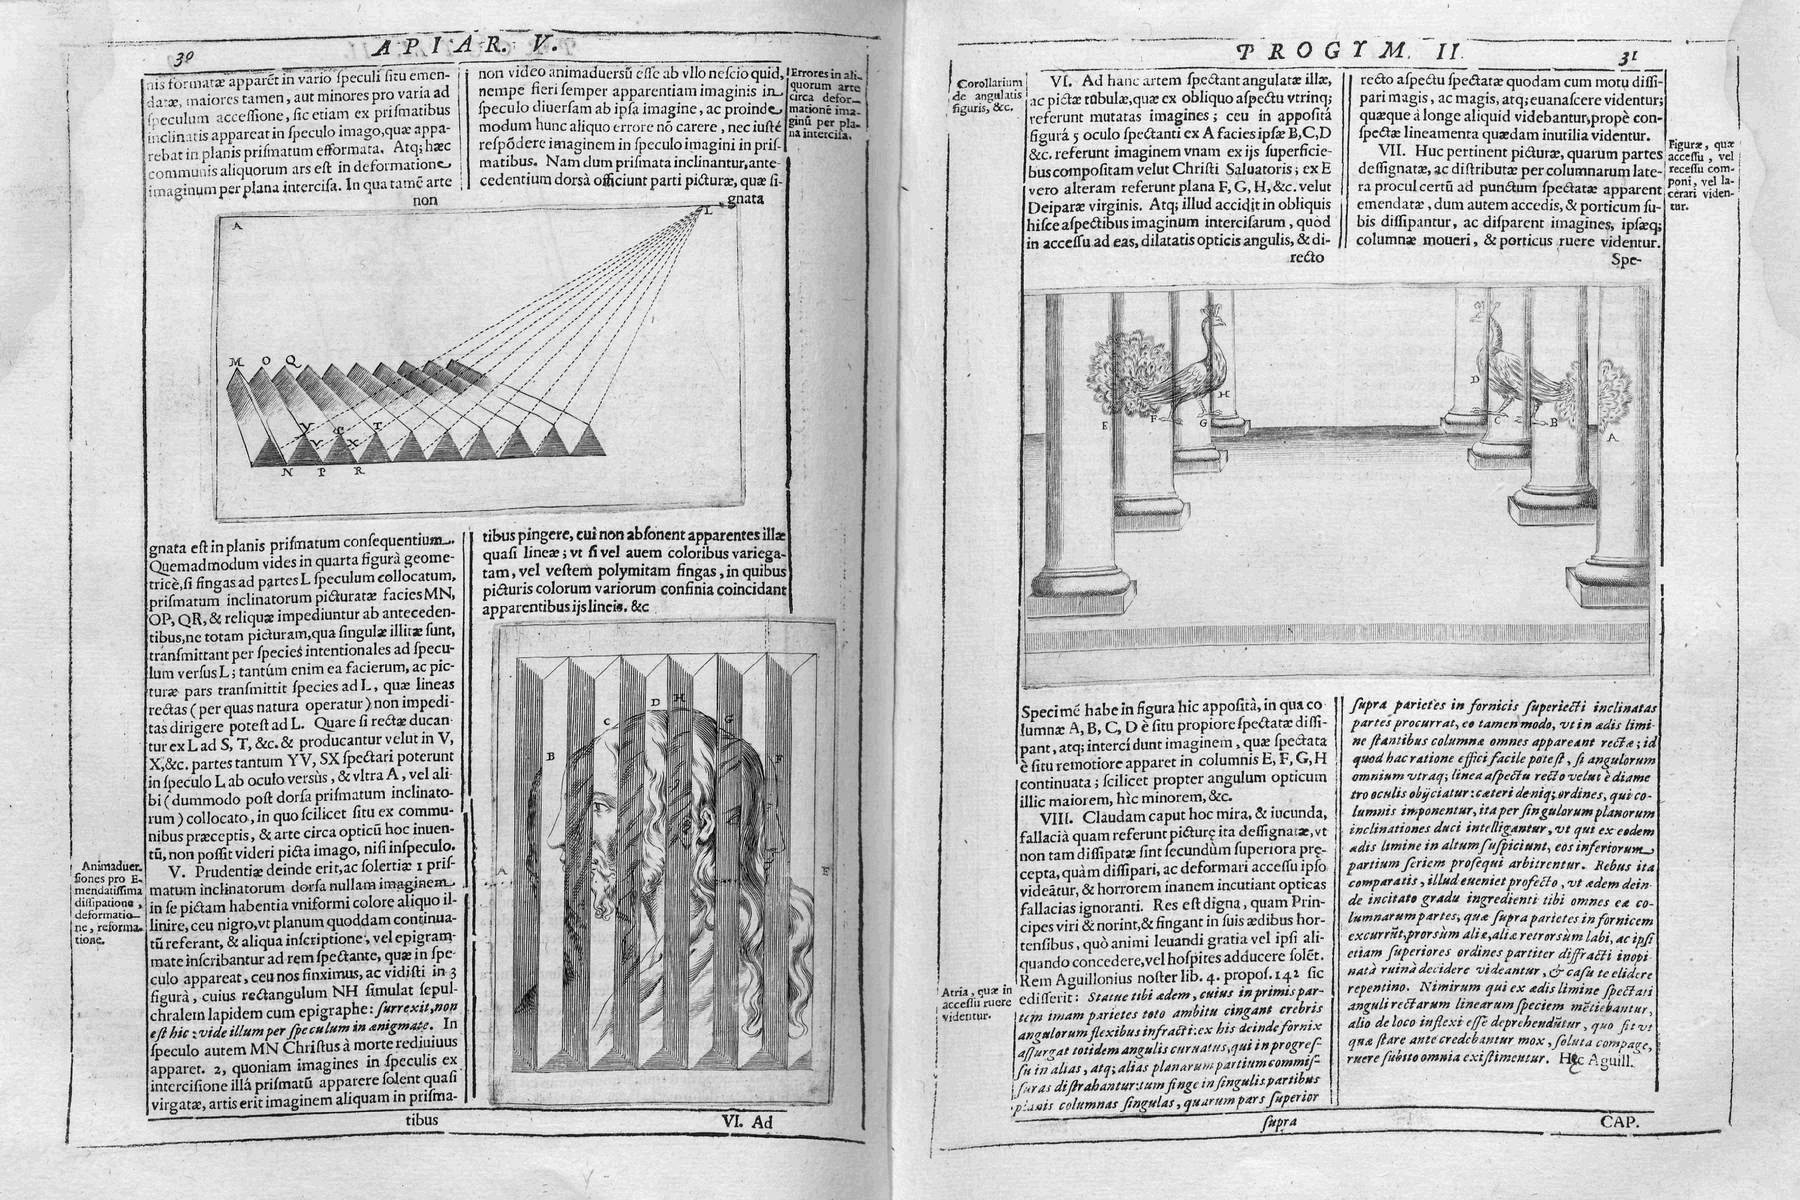 30
APIAR. V.
nis formatæ apparēt in vario ſpeculi ſitu emen-
datæ, maiores tamen, aut minores pro varia ad
ſpeculum acceſſione, ſic etiam ex priſmatibus
inclinatis appareat in ſpeculo imago,quæ appa-
rebat in planis priſmatum efformata. Atq; hæc
communis aliquorum ars eſt in deformatione
imaginum per plana interciſa. In qua tamē arte
non
non video animaduersū eſſe ab vllo neſcio quid,
nempe fieri ſemper apparentiam imaginis in
ſpeculo diuerſam ab ipſa imagine, ac proinde
modum hunc aliquo errore nō carere, nec iuſtè
reſpōdere imaginem in ſpeculo imagini in priſ-
matibus. Nam dum priſmata inclinantur,ante-
cedentium dorsà officiunt parti picturæ, quæ ſi-
gnata
Errores in ali-
quorum arte
circa defor-
matione ima-
ginū per pla-
na interciſa.
A
L
M O Q
V S T
Y X
N P R
gnata eſt in planis priſmatum conſequentium.
Quemadmodum vides in quarta figurâ geome-
tricè,ſi fingas ad partes L ſpeculum collocatum,
priſmatum inclinatorum picturatæ facies MN,
OP, QR, & reliquæ impediuntur ab anteceden-
tibus,ne totam picturam,qua ſingulæ illitæ ſunt,
tránſmittant per ſpecies intentionales ad ſpecu-
lum verſus L; tantúm enim ea facierum, ac pic-
turæ pars tranſmittit ſpecies ad L, quæ lineas
rectas ( per quas natura operatur ) non impedi-
tas dirigere poteſt ad L. Quare ſi rectæ ducan-
tur ex L ad S, T, &c. & producantur velut in V,
X,&c. partes tantum YV, SX ſpectari poterunt
in ſpeculo L ab oculo versùs, & vltra A, vel ali-
bi ( dummodo poſt dorſa priſmatum inclinato-
rum ) collocato, in quo ſcilicet ſitu ex commu-
nibus præceptis, & arte circa opticū hoc inuen-
tū, non poſſit videri picta imago, niſi inſpeculo.
V. Prudentiæ deinde erit,ac ſolertiæ 1 priſ-
matum inclinatorum dorſa nullam imaginem
in ſe pictam habentia vniformi colore aliquo il-
linire, ceu nigro,vt planum quoddam continua-
tū referant, & aliqua inſcriptione, vel epigram-
mate inſcribantur ad rem ſpectante, quæ in ſpe-
culo appareat, ceu nos finximus, ac vidiſti in 3
figurâ, cuius rectangulum NH ſimulat ſepul-
chralem lapidem cum epigraphe: ſurrexit,non
eſt hic : vide illum per ſpeculum in ænigmate. In
ſpeculo autem MN Chriſtus à morte rediuiuus
apparet. 2, quoniam imagines in ſpeculis ex
interciſione illâ priſmatū apparere ſolent quaſi
virgatæ, artis erit imaginem aliquam in priſma-
tibus
Animaduer-
ſiones pro E-
mendatiſſima
diſſipatione,
deformatio-
ne, reforma-
tione.
tibus pingere, cui non abſonent apparentes illæ
quaſi lineæ; vt ſi vel auem coloribus variega-
tam, vel veſtem polymitam fingas, in quibus
picturis colorum variorum confinia coincidant
apparentibus ijs lineis. &c
B C D H G F
A E
VI. Ad
PROGYM. II.
31
Corollarium
de angulatis
figuris, &c.
VI. Ad hanc artem ſpectant angulatæ illæ,
ac pictæ tabulæ,quæ ex obliquo aſpectu vtrinq;
referunt mutatas imagines; ceu in appoſitâ
figurâ 5 oculo ſpectanti ex A facies ipſæ B,C,D
&c. referunt imaginem vnam ex ijs ſuperficie-
bus compoſitam velut Chriſti Saluatoris; ex E
vero alteram referunt plana F, G, H, &c. velut
Deiparæ virginis. Atq; illud accidit in obliquis
hiſce aſpectibus imaginum interciſarum, quòd
in acceſſu ad eas, dilatatis opticis angulis, & di-
recto
recto aſpectu ſpectatæ quodam cum motu diſſi-
pari magis, ac magis, atq; euanaſcere videntur;
quæque à longe aliquid videbantur,propè con-
ſpectæ lineamenta quædam inutilia videntur.
VII. Huc pertinent picturæ, quarum partes
deſſignatæ, ac diſtributæ per columnarum late-
ra procul certū ad punctum ſpectatæ apparent
emendatæ, dum autem accedis, & porticum ſu-
bis diſſipantur, ac diſparent imagines, ipſæq;
columnæ moueri, & porticus ruere videntur.
Spe-
Figuræ, quæ
acceſſu, vel
receſſu com-
poni, vel la-
cerari viden-
tur.
E F G H
D C B A
Specimē habe in figura hic appoſitâ, in qua co-
lumnæ A, B, C, D è ſitu propiore ſpectatæ diſſi-
pant, atq; interci dunt imaginem, quæ ſpectata
è ſitu remotiore apparet in columnis E, F, G, H
continuata; ſcilicet propter angulum opticum
illic maiorem, hìc minorem, &c.
VIII. Claudam caput hoc mira, & iucunda,
fallaciâ quam referunt picturę ita deſſignatæ,vt
non tam diſſipatæ ſint ſecundùm ſuperiora prę-
cepta, quàm diſſipari, ac deformari acceſſu ipſo
videātur, & horrorem inanem incutiant opticas
fallacias ignoranti. Res eſt digna, quam Prin-
cipes viri & norint,& fingant in ſuis ædibus hor-
tenſibus, quò animi leuandi gratia vel ipſi ali-
quando concedere,vel hoſpites adducere ſolēt.
Rem Aguillonius noſter lib. 4. propoſ.142 ſic
ediſſerit: Statue tibi ædem, cuius in primis par-
tem imam parietes toto ambitu cingant crebris
angulorum flexibus infracti:ex his deinde fornix
aſſurgat totidem angulis curuatus,qui in progreſ-
ſu in alias, atq; alias planarum partium commiſ-
ſuras diſtrahantur:tum finge in ſingulis partibus
planis columnas ſingulas, quarum pars ſuperior
ſupra
Atria, quæ in
acceſſu ruere
videntur.
ſupra parietes in fornicis ſuperiecti inclinatas
partes procurrat, eo tamen modo, vt in ædis limi-
ne ſtantibus columnæ omnes appareant rectæ; id
quod hac ratione effici facile poteſt, ſi angulorum
omnium vtraq; linea aſpectu recto velut è diame
tro oculis obijciatur: cæteri deniq; ordines, qui co-
lumnis imponentur, ita per ſingulorum planorum
inclinationes duci intelligantur, vt qui ex eodem
ædis limine in altum ſuſpiciunt, eos inferiorum
partium ſeriem proſequi arbitrentur. Rebus ita
comparatis, illud eueniet profecto, vt ædem dein-
de incitato gradu ingredienti tibi omnes eæ co-
lumnarum partes, quæ ſupra parietes in fornicem
excurrūt,prorsùm aliæ,aliæ retrorsùm labi, ac ipſi
etiam ſuperiores ordines partiter diffracti inopi
natâ ruinâ decidere videantur, & caſu te elidere
repentino. Nimirum qui ex ædis limine ſpectati
anguli rectarum linearum ſpeciem mētiebantur,
alio de loco inflexi eſſe deprehendūtur, quo fit vt
quæ ſtare ante credebantur mox, ſoluta compage,
ruere ſubito omnia exiſtimentur. Hęc Aguill.
CAP.